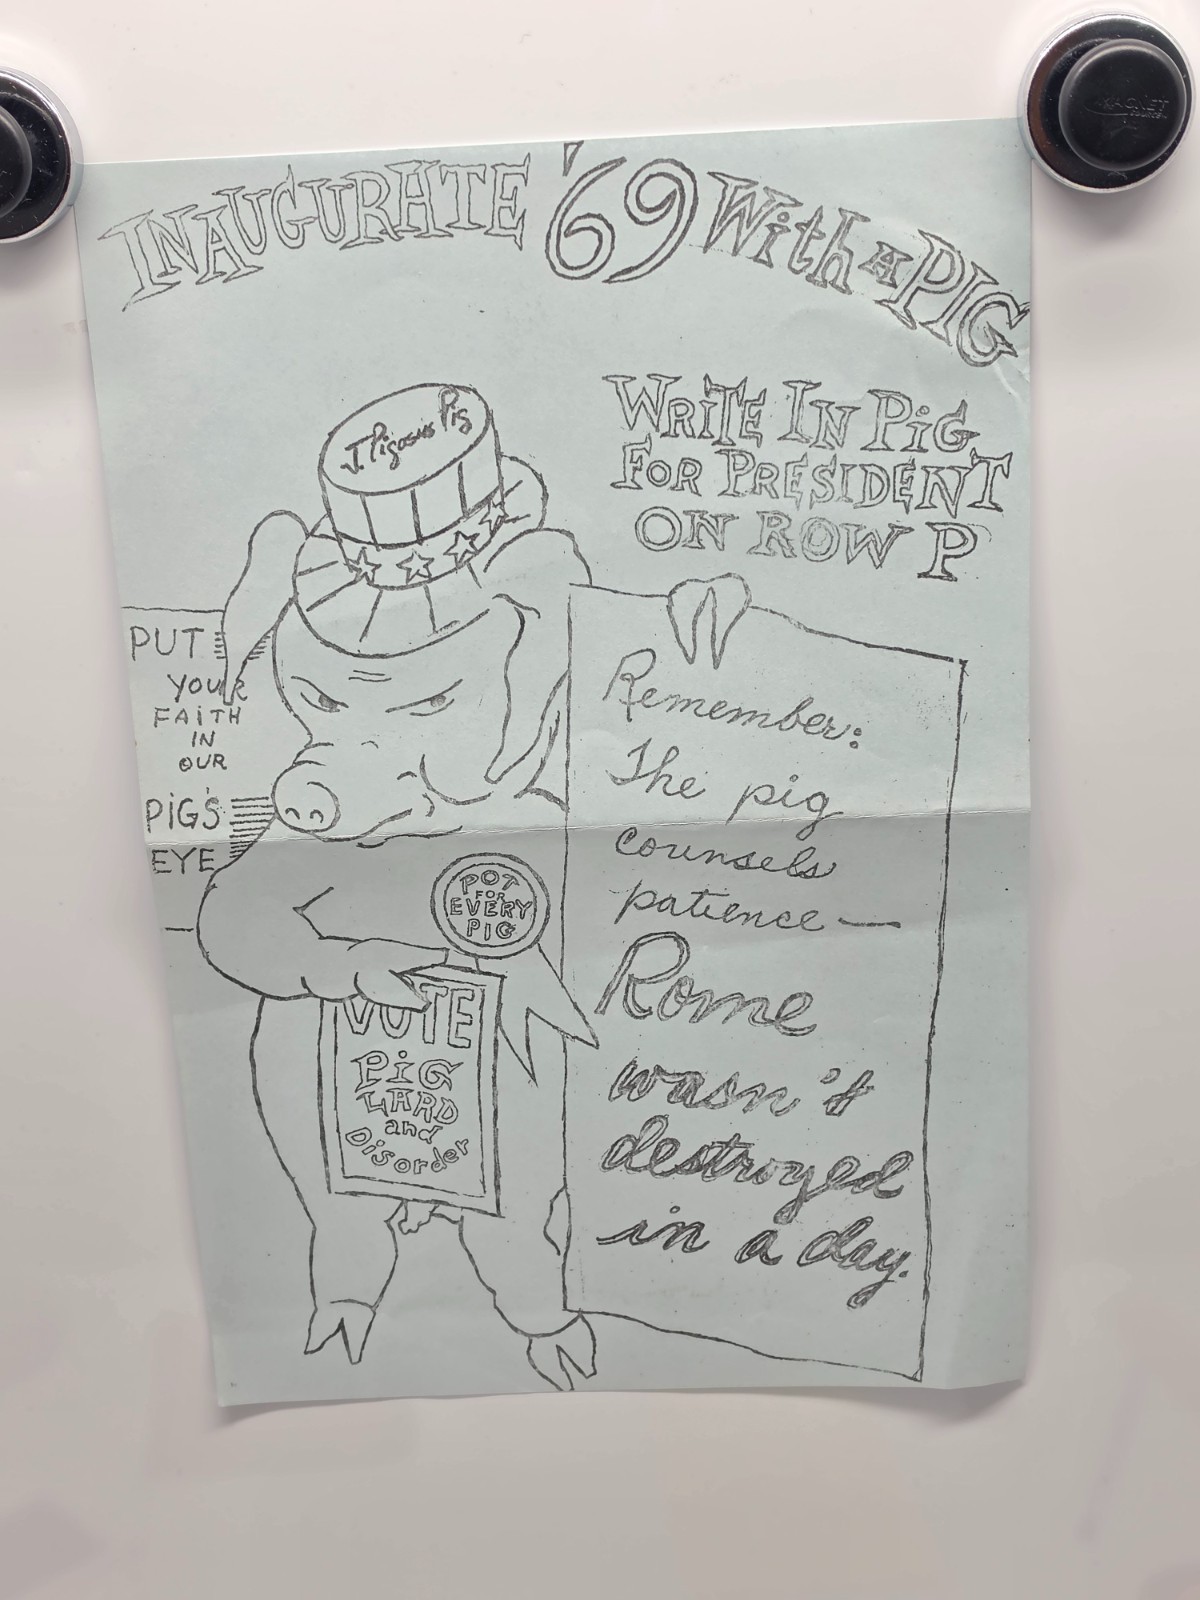 INAUGURATE '69 With A PIG
WRiTE IN PiG
FOR PRESIDENT
ON ROW P
J. Pigasus Pig
PUT
YOUR
FAiTH
IN
OUR
PiG'S
EYE
POT
FOR
EVERY
PIG
VOTE
PiG
LARD
and
Disorder
Remember:
The pig
counsels
patience—
Rome
wasn't
destroyed
in a day.
MAGNET
SOURCE